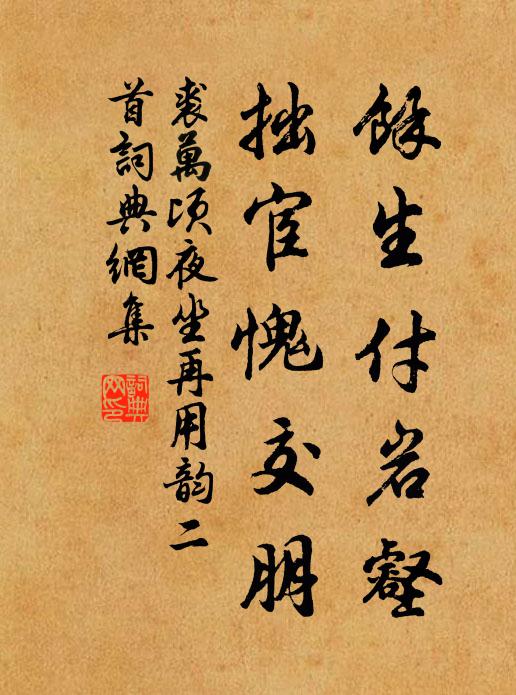 餘生付岩壑
拙宦愧交朋
裘萬頃夜坐再用韵二
首詞典網集
詞典
网印